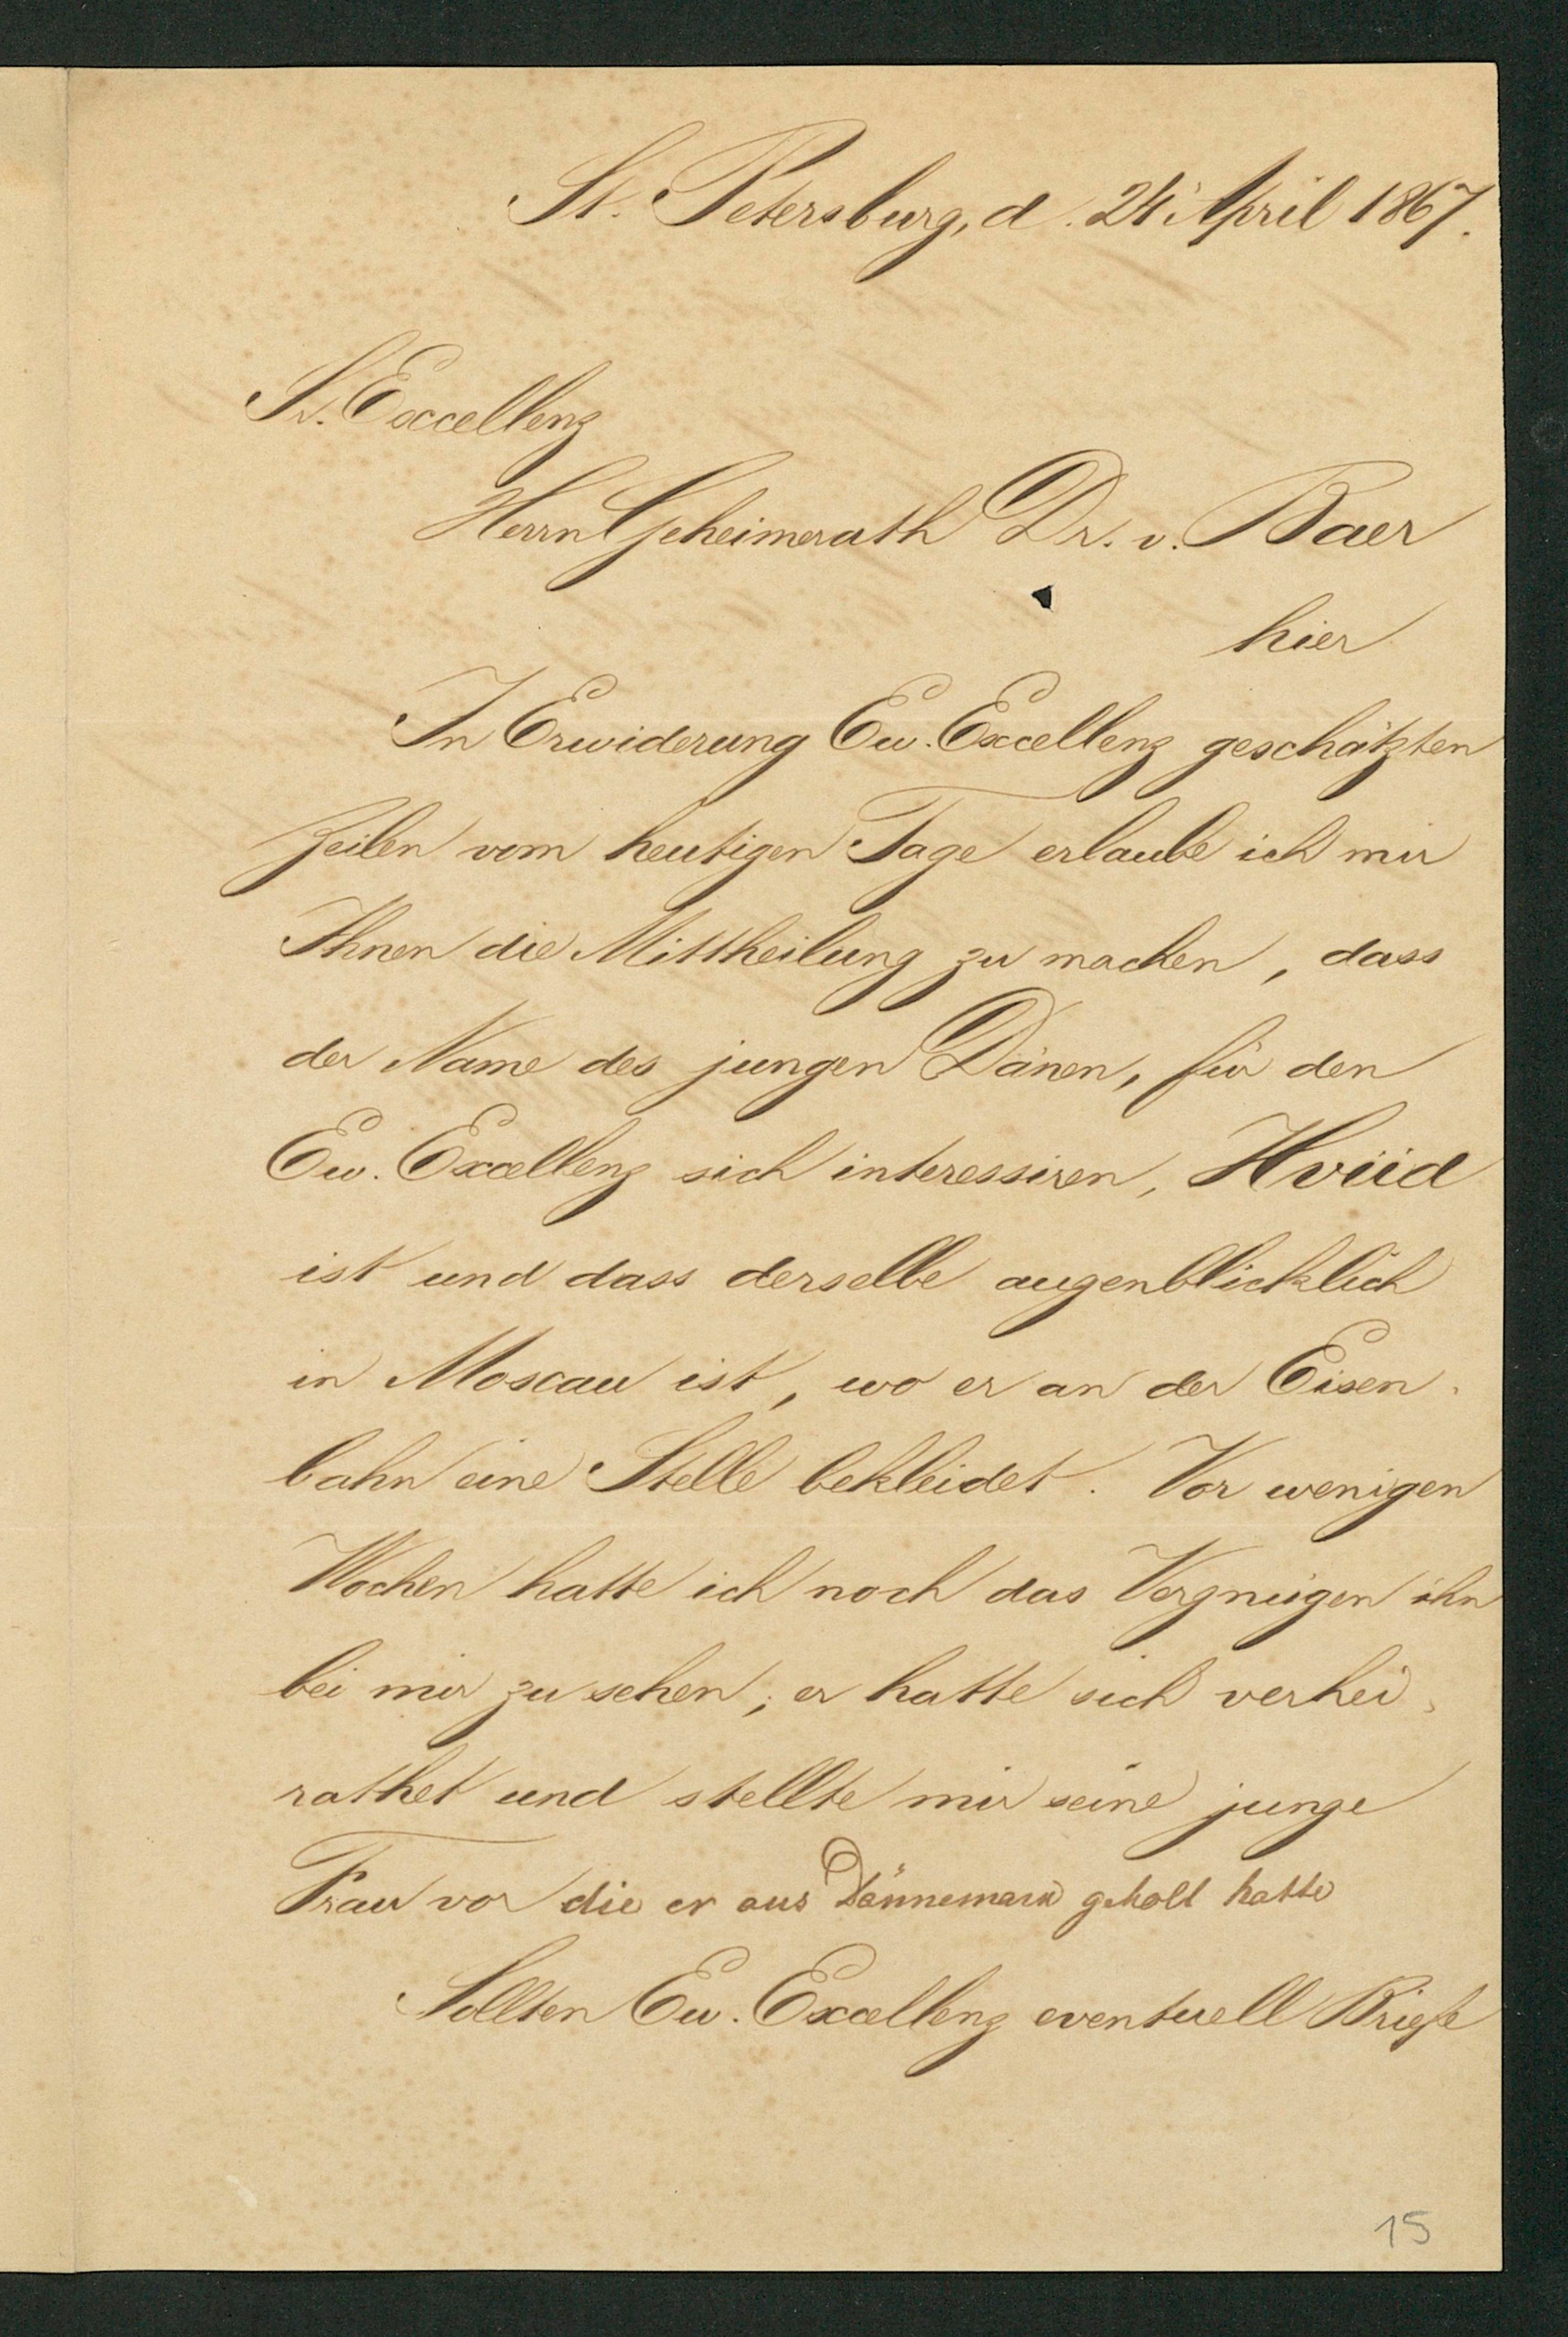 St. Petersburg, d. 24 April 1867.
Sr. Excellenz
Herrn Geheimerath Dr. v. Baer
hier
In Erwiderung Ew. Excellenz geschätzten
Zeilen vom heutigen Tage erlaube ich mir
Ihnen die Mittheilung zu machen, dass
der Name des jungen Dänen, für den
Ew. Excellenz sich interessiren, Hviid
ist und dass derselbe augenblicklich
in Moscau ist, wo er an der Eisen-
bahn eine Stelle bekleidet. Vor wenigen
Wochen hatte ich noch das Vergnügen ihn
bei mir zu sehen; er hatte sich verhei-
rathet und stellte mir seine junge
Frau vor die er aus Dännemark geholt hatte
Sollten Ew. Excellenz eventuell Briefe
15